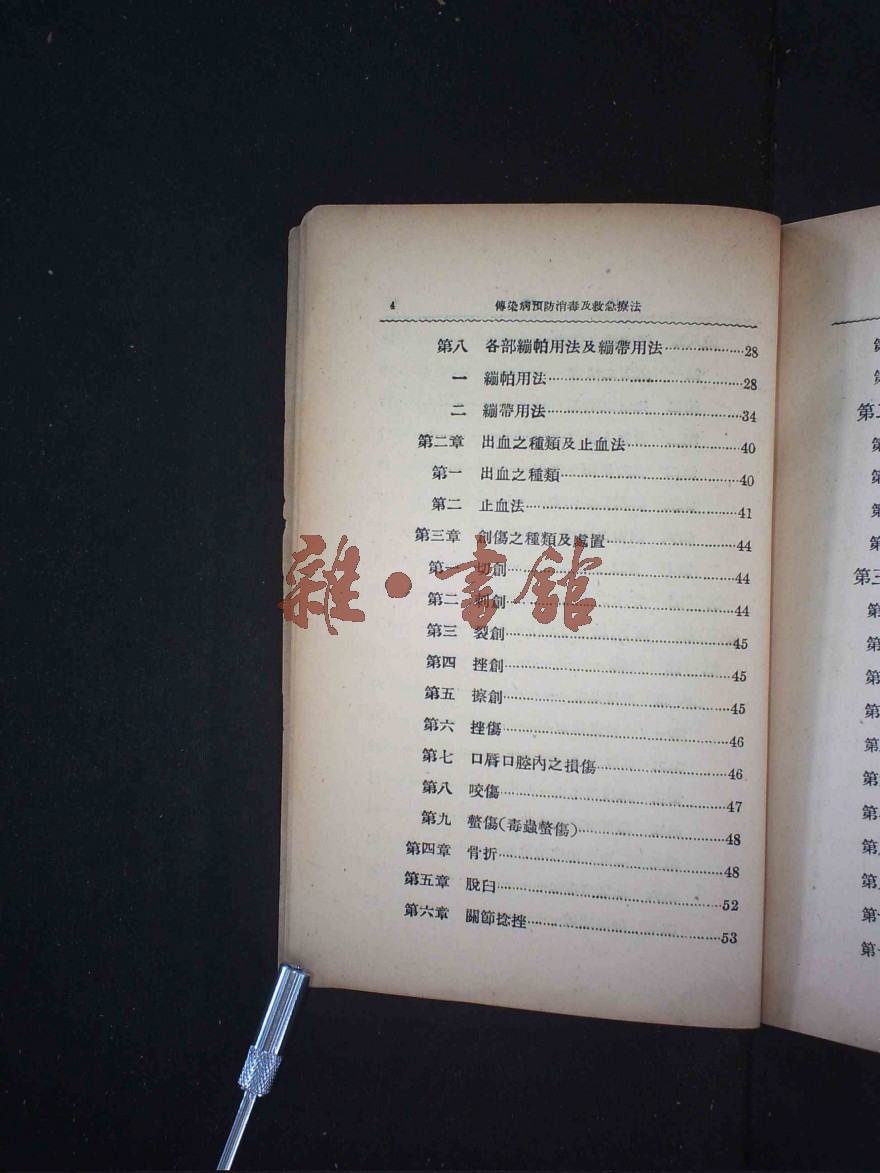 4 傳染病預防消毒及救急療法
第八 各部繃帕用法及繃帶用法………………28
一 繃帕用法………………28
二 繃帶用法………………34
第二章 出血之種類及止血法………………40
第一 出血之種類………………40
第二 止血法………………41
第三章 創傷之種類及處置………………44
第一 切創………………44
第二 刺創………………44
第三 裂創………………45
第四 挫創………………45
第五 擦創………………45
第六 挫傷………………46
第七 口唇口腔內之損傷………………46
第八 咬傷………………47
第九 螫傷(毒蟲螫傷)………………48
第四章 骨折………………48
第五章 脫臼………………52
第六章 關節捻挫………………53
雜·書館
第
第
第二
第
第
第
第
第三
第
第
第
第
第
第
第
第
第
第
第